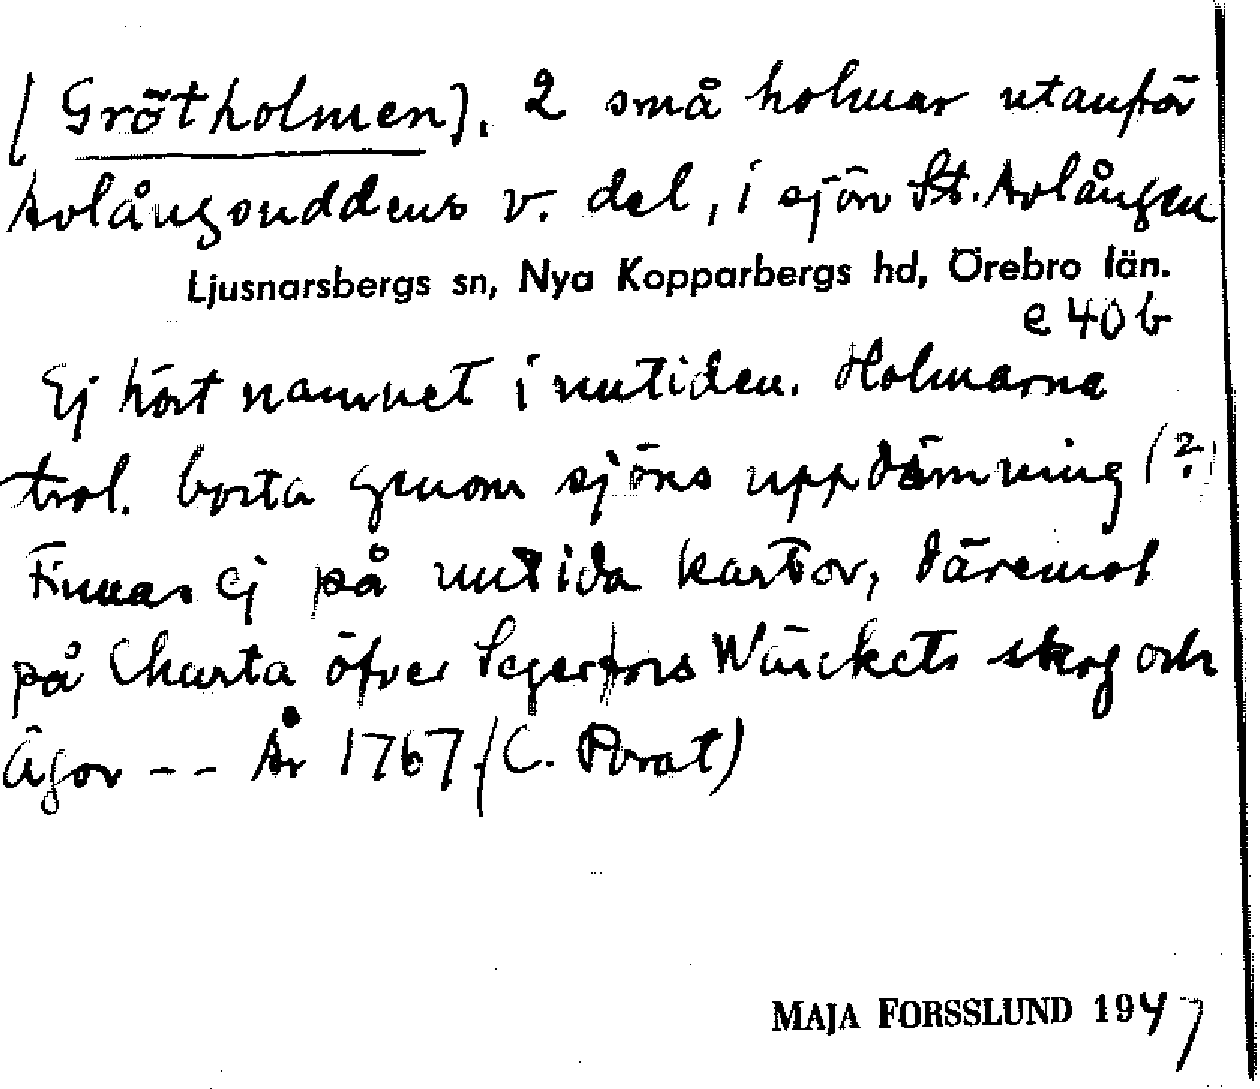 [Grötholmen], 2 små holmar utanför
Avlångsuddens v. del, i sjön St. Avlången
Ljusnarsbergs sn, Nya Kopparbergs hd, Örebro län.
e 40 b
Ej hört namnet i nutiden. Holmarna
trol. borta genom sjöns uppdämning (?)
Finnas ej på nutida kartor, däremot
på Charta öfver Segerfors Wärckets skog och
ägor -- År 1767 (C. Porat)
MAJA FORSSLUND 1947